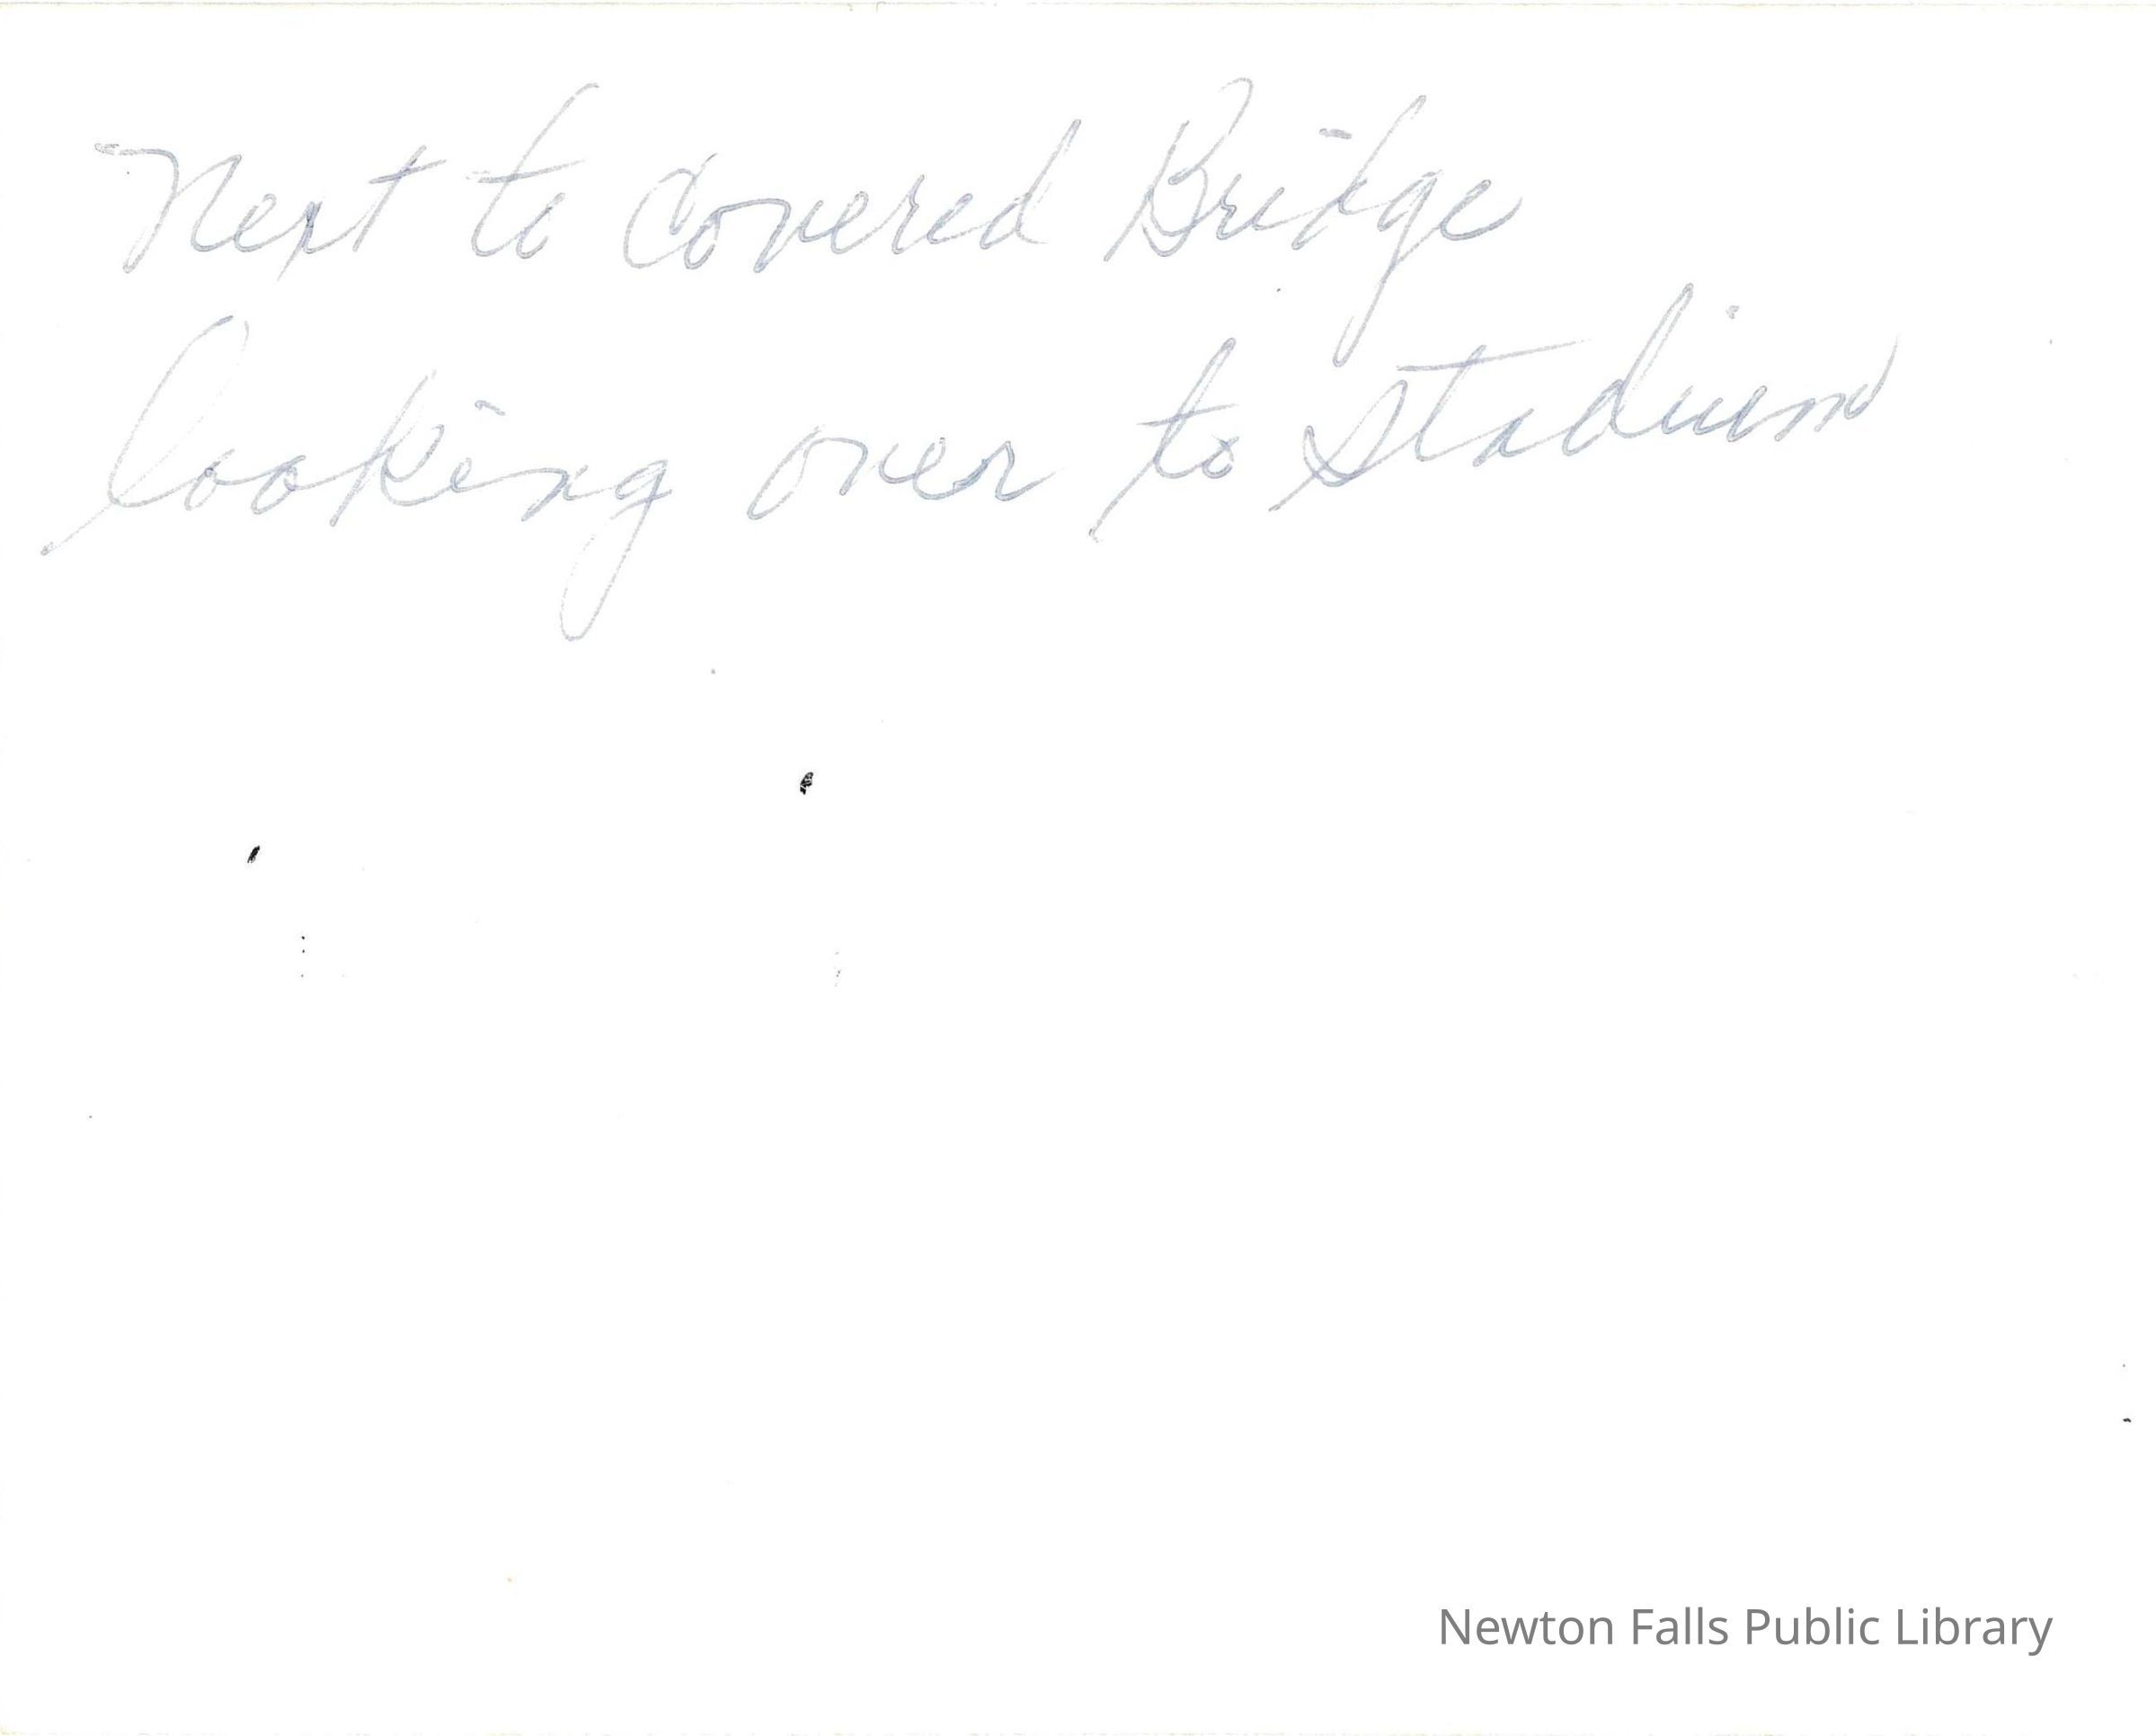 Next to Covered Bridge
looking over to Stadium
Newton Falls Public Library